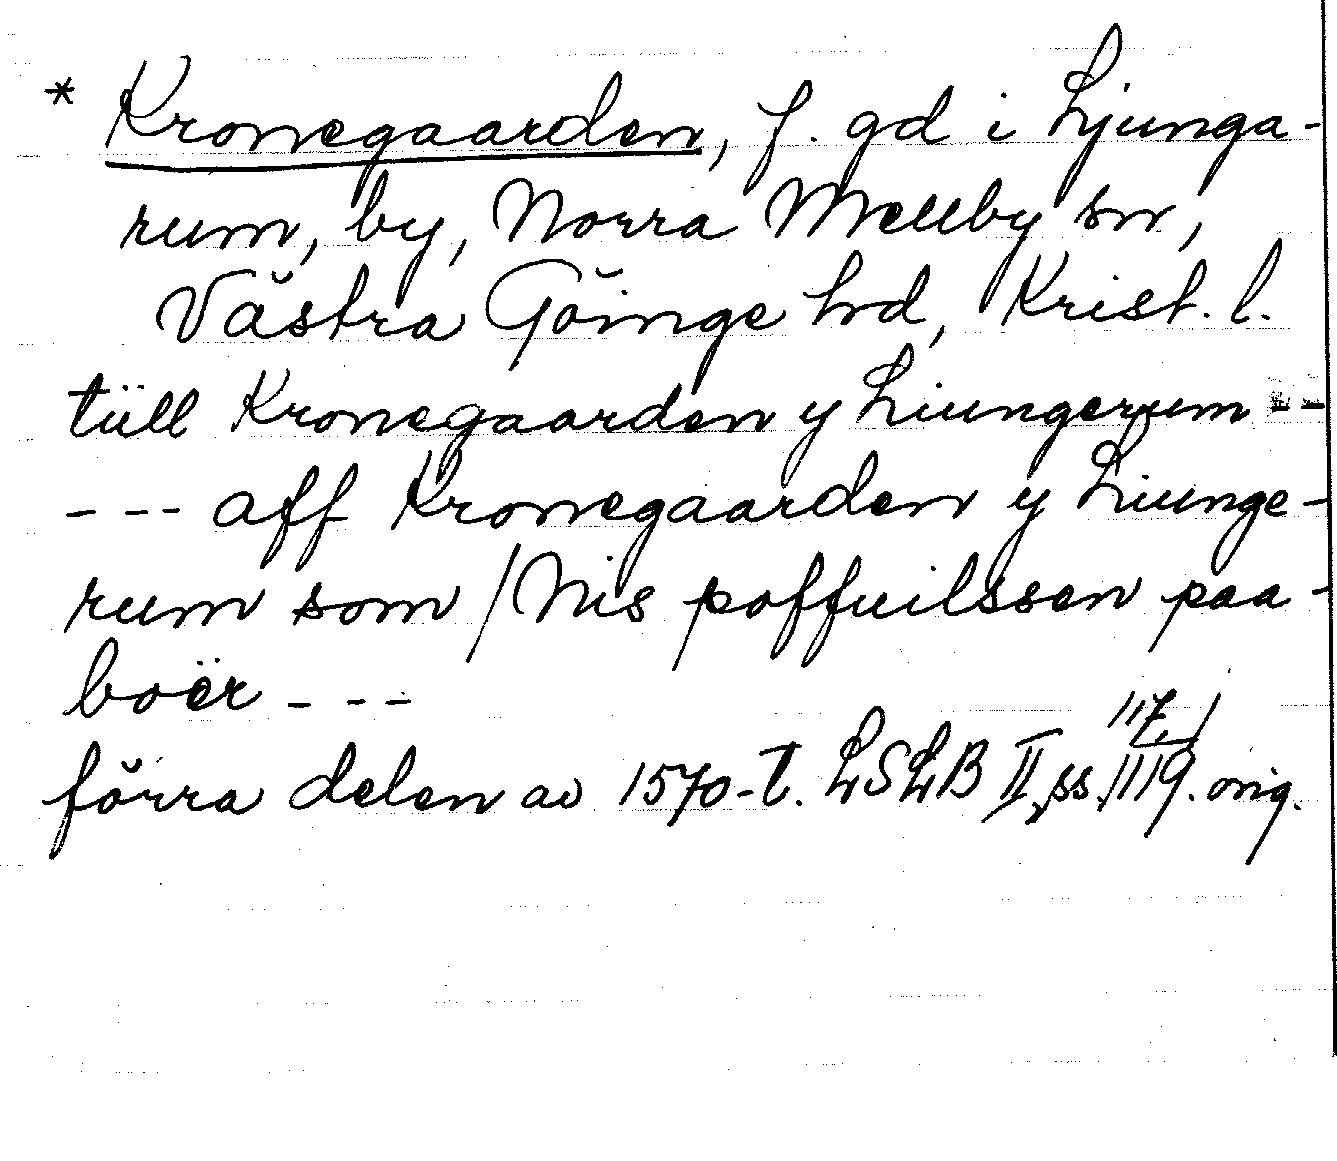 * Kronegaarden, f. gd i Ljunga-
rum, by, Norra Mellby sn,
Västra Göinge hd, Krist. l.
tüll Kronegaarden y Liungerum ---
--- aff Kronegaarden y Liunge-
rum som / Nis poffuilssen paa-
boër ---
förra delen av 1570-t. LSLB II, ss. 117, 119. orig.